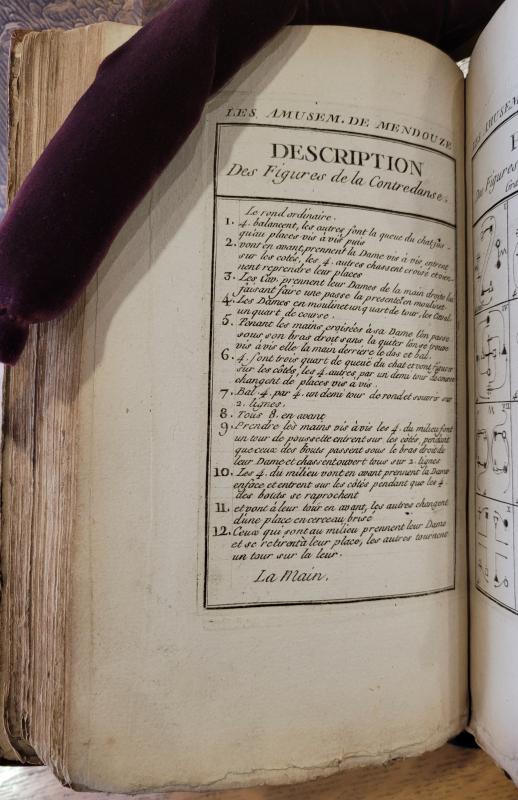 LES AMUSEM. DE MENDOUZE
DESCRIPTION
Des Figures de la Contredanse.
Le rond ordinaire.
1. 4. balancent, les autres font la queue du chat jus-
qu'au places vis à vis puis
2. vont en avant, prennent la Dame vis à vis, entrent
sur les cotés, les 4. autres chassent croisé et vien-
nent reprendre leur places
3. Les Cav. prennent leur Dames de la main droite lui
faisant faire une passe la presente en moulinet
4. Les Dames en moulinet un quart de tour, les Caval.
un quart de course.
5. Tenant les mains croisées à sa Dame l'on passe
sous son bras droit sans la quiter l'on se trouve
vis à vis elle la main derriere le dos et bal.
6. 4. font trois quart de queue du chat et vont figurer
sur les côtés, les 4. autres par un demi tour
changent de places vis à vis.
7. Bal. 4. par 4. un demi tour de rond et s'ouvrir sur
2. lignes.
8. Tous 8. en avant
9. Prendre les mains vis à vis les 4. du milieu font
un tour de poussette entrent sur les cotés, pendant
que ceux des bouts passent sous le bras droit de
leur Dame et chassent ouvert tous sur 2. lignes
10. Les 4. du milieu vont en avant prennent la Dame
en face et entrent sur les côtés pendant que les 4.
des bouts se raprochent
11. et vont à leur tour en avant, les autres changent
d'une place en cerceau brisé
12. Ceux qui sont au milieu prennent leur Dame
et se retirent à leur place, les autres tournent
un tour sur la leur.
La Main.
LES AMUSEM.